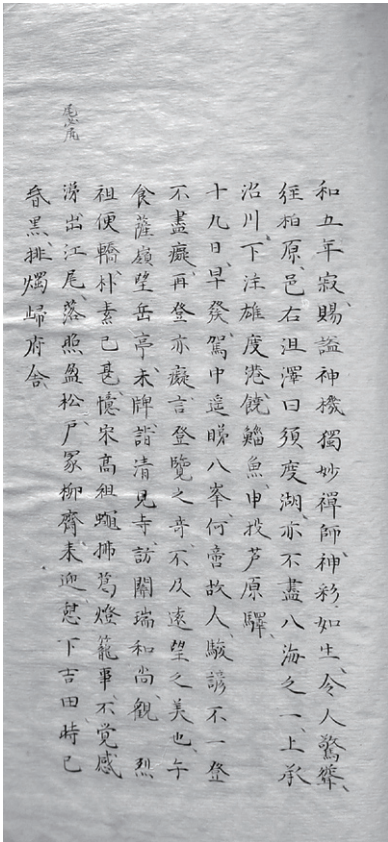 和五年寂、賜謚神機獨妙禪師、神彩如生、令人驚縶、
經柏原、邑右沮澤曰須度湖、亦不盡八海之一、上承
沼川、下注雄度港、饒鯔魚、申投芦原驛、
十九日、早發、駕中遥睇八峯、何啻故人、駿諺不一登
不盡癡、再登亦癡、言登覽之奇、不及遠望之美也、午
食薩嶺望岳亭、未牌詣清見寺、訪關瑞和尚、觀 烈
祖便轎、朴素已甚、憶宋高祖蠅拂葛燈籠事、不覚感
涕、出江尾、落照盈松、戸冢柳齊未迎慰、下吉田時已
昏黒、排燭歸府舍、